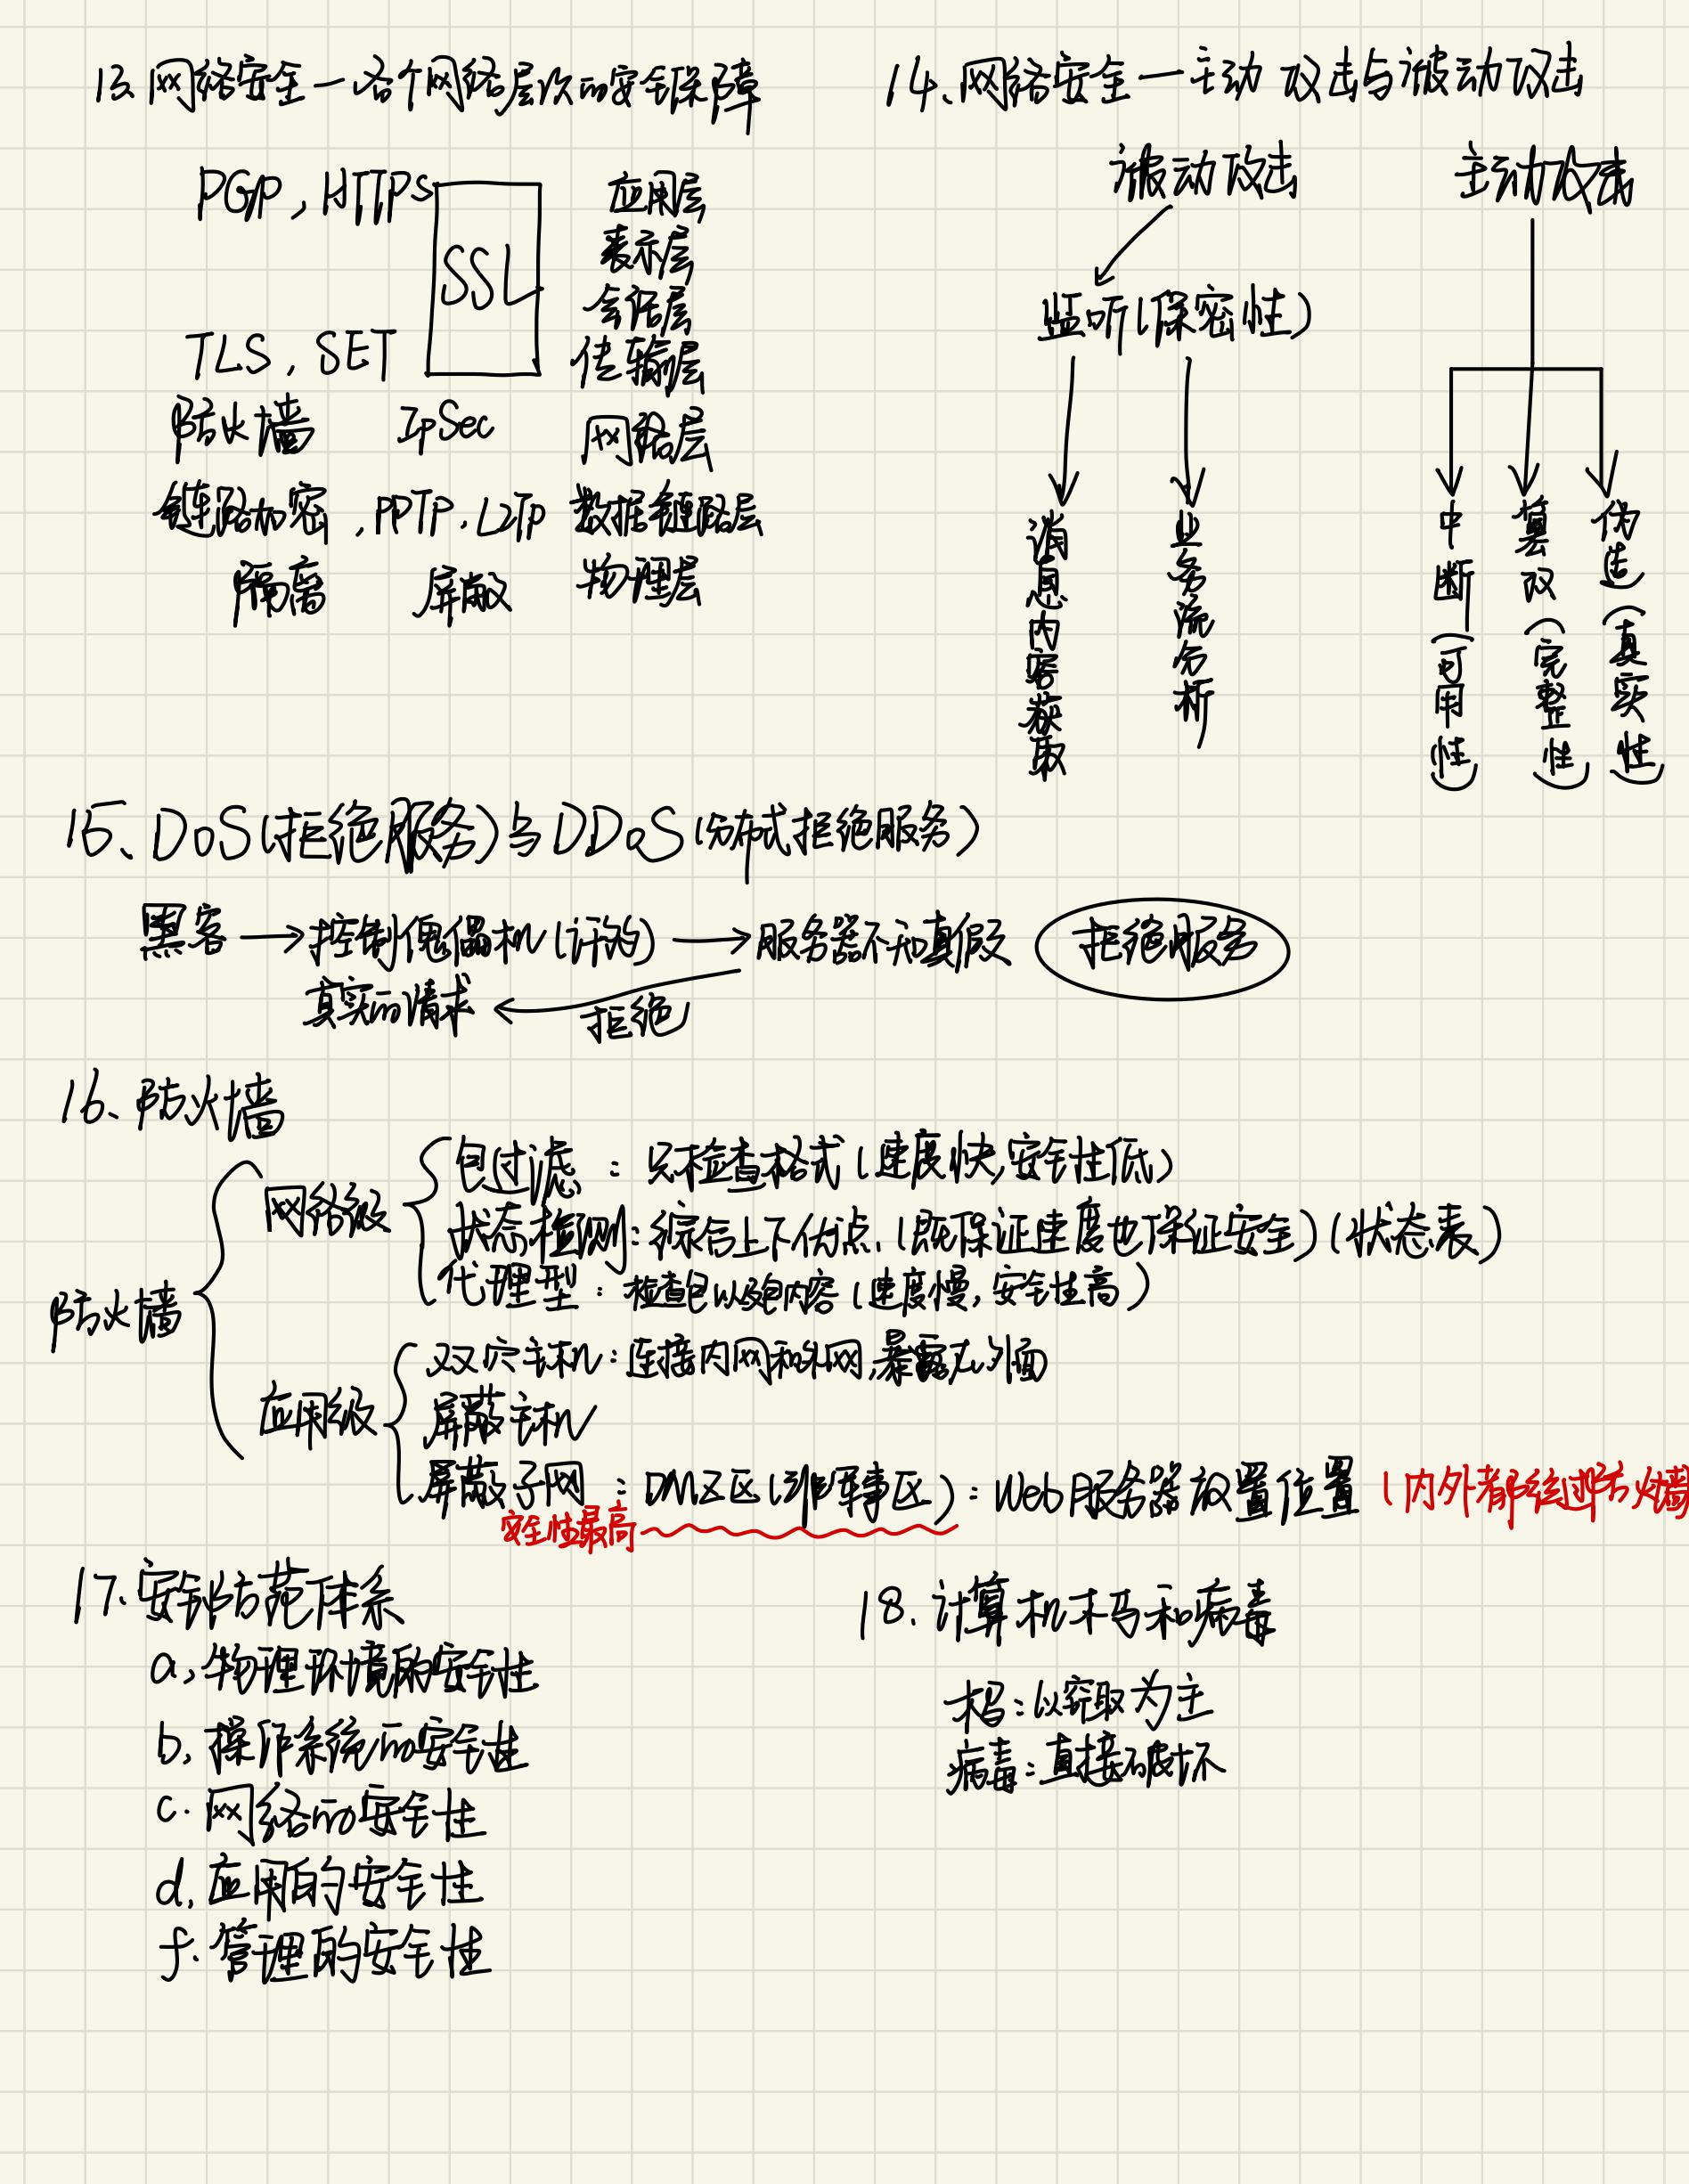 13、网络安全—各个网络层次的安全保障
PGP,HTTPs
SSL
应用层
表示层
会话层
TLS,SET
传输层
防火墙 IpSec 网络层
链路加密,PPTP,L2Tp 数据链路层
隔离 屏蔽 物理层
14、网络安全—主动攻击与被动攻击
被动攻击
主动攻击
监听(保密性)
消息内容获取
业务流分析
中断(可用性)
篡改(完整性)
伪造(真实性)
15、DoS(拒绝服务)与DDoS(分布式拒绝服务)
黑客→控制傀儡机(许多)→服务器不知真假 拒绝服务
真实的请求←拒绝
16、防火墙
防火墙
网络级
包过滤:只检查格式(速度快,安全性低)
状态检测:综合上下优点.(既保证速度也保证安全)(状态表)
代理型:检查包以及包内容(速度慢,安全性高)
应用级
双穴主机:连接内网和外网,暴露在外面
屏蔽主机
屏蔽子网:DMZ区(非军事区):Web服务器放置位置(内外都经过防火墙
安全性最高
17.安全防范体系
a,物理环境的安全性
b,操作系统的安全性
c.网络的安全性
d.应用的安全性
f.管理的安全性
18.计算机木马和病毒
木马:以窃取为主
病毒:直接破坏